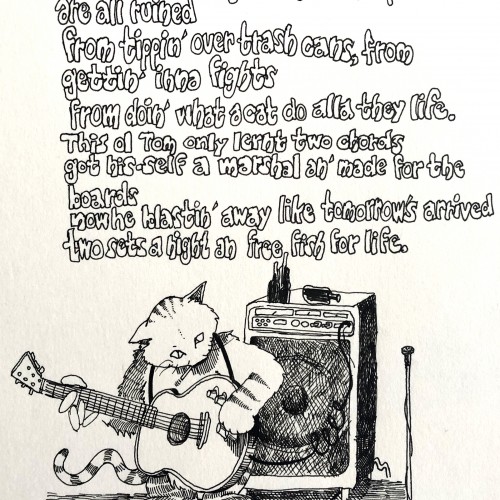 are all ruined
from tippin' over trash cans, from
gettin' inna fights
from doin' what a cat do alla they life.
This ol Tom only lernt two chords
got his-self a marshal an' made for the
boards
now he blastin' away like tomorrow's arrived
two sets a night an free fish for life.